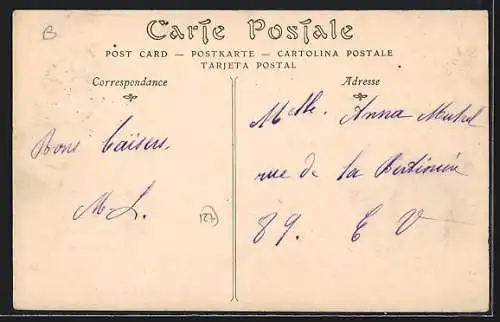 B
Carte Postale
POST CARD — POSTKARTE — CARTOLINA POSTALE
TARJETA POSTAL
Correspondance
Adresse
Bons baisers,
M. L.
127
Melle. Anna
rue de la
89. E V